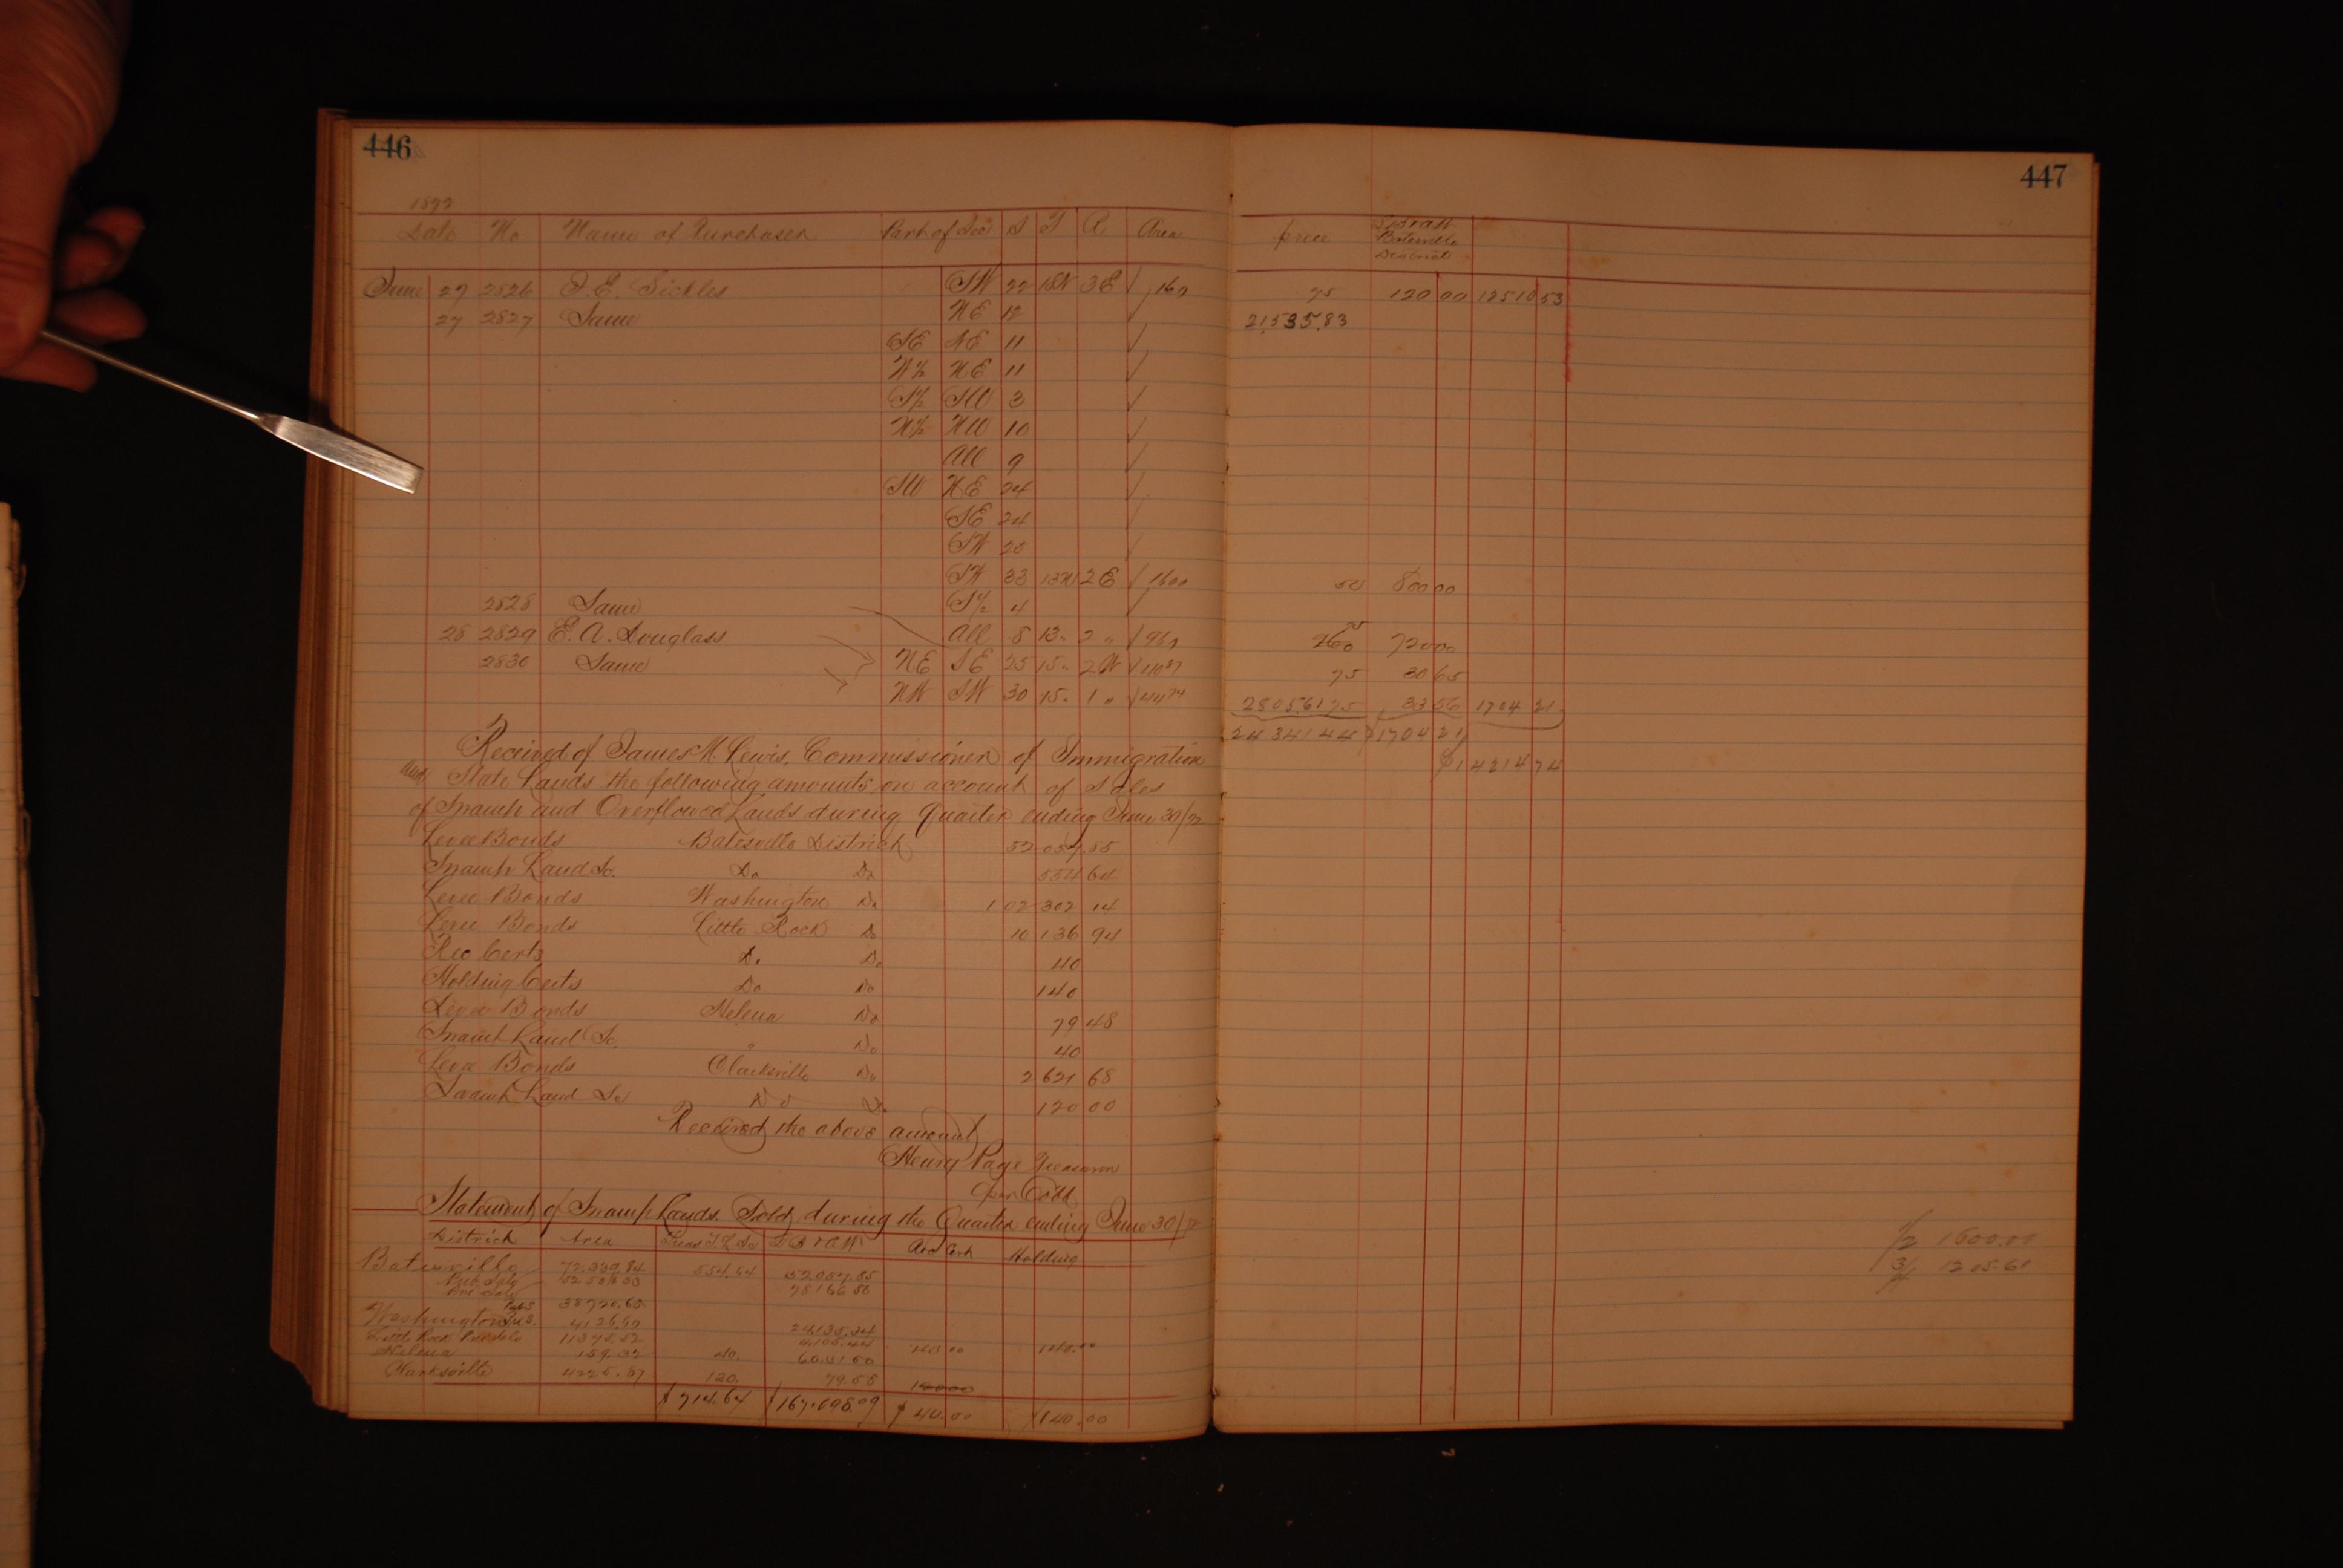 446
447
1872
Date No Name of Purchaser Part of Sec S T R Area price Batesville District
June 27 2826 J. E. Sickles SW 22 18N 3E 160 75 120 00 12510 53
27 2827 Same NE 12 21,535.83
SE NE 11
W½ NE 11
S½ SW 3
N½ NW 10
All 9
SW NE 24
SE 24
SW
SW 33 13N 2E 1600 50 800 00
2828 Same S½ 4
28 2829 E. A. Douglass All 8 13 " 2 " 960 75 720 00
2830 Same NE SE 25 15 " 2W 40 87 75 30 65
NW SW 30 15 " 1 " 44 74 28056 1 75 33 56 1704 21
24 341 44 1704 21
$14214 74
Received of James M Lewis, Commissioner of Immigration
and State Lands the following amounts on account of Sales
of Swamp and Overflowed Lands during Quarter ending June 30/72
Levee Bonds Batesville District 52 057.85
Swamp Land Sc. Do Do 554 64
Levee Bonds Washington Do 1 02 302 14
Levee Bonds Little Rock Do 10 136 94
Rec Certs Do Do 40
Holding Certs Do Do 140
Levee Bonds Helena Do 79 48
Swamp Land Sc. " Do 40
Levee Bonds Clarksville Do 2 621 68
Swamp Land Sc Do Do 120 00
Received the above amount
Henry Page Treasurer
per Cobb
Statement of Swamp Lands Sold during the Quarter ending June 30/72
District Area Swas S. L. Sc Holding
Batesville 72.339.84 554.64 52057.85
Pub Sale 78166.80
Pri Sale
Washington Pub S. 38720.65
Pri S. 4126.60 24,135.34
Little Rock Pri Sale 11375.52 40 00 140.00
Helena 159.32 40.
Clarksville 4225.87 120. 79.58
$714.64 $ 40.00 $140.00
1/2 1600.00
3/4 1205.61